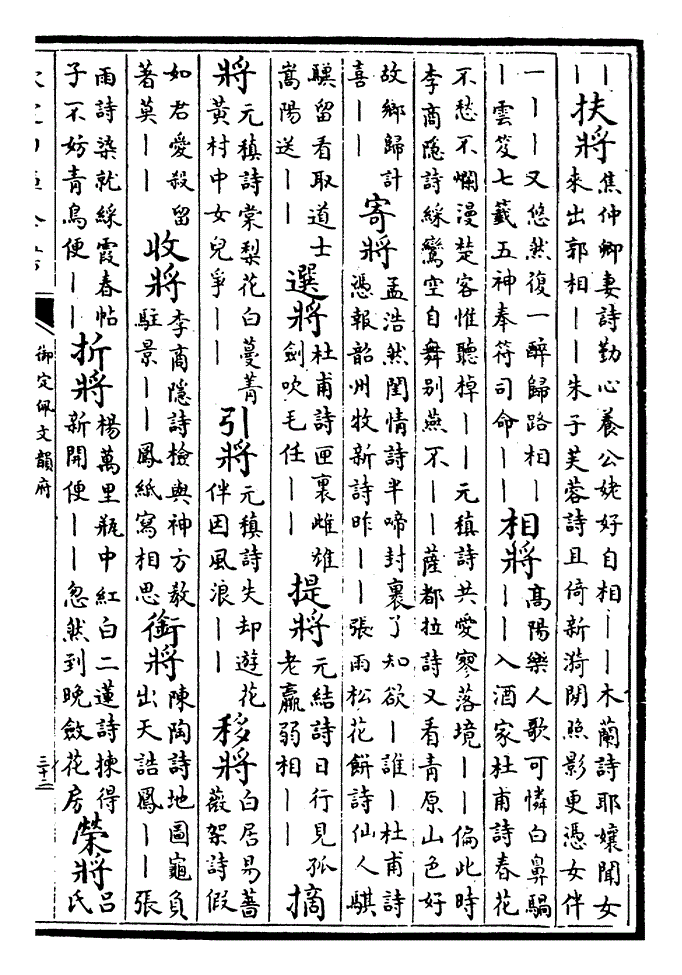 ｜
｜
扶將
焦仲卿妻詩勤心養公姥好自相｜｜木蘭詩耶孃聞女
來出郭相｜｜朱子芙蓉詩且倚新漪閉照影更憑女伴
一｜｜｜又悠然復一醉歸路相｜
｜雲笈七籤五神奉符司命｜｜
相將
高陽樂人歌可憐白鼻騧
｜｜入酒家杜甫詩春花
不愁不爛漫楚客惟聽棹｜｜元稹詩共愛寥落境｜｜偏此時
李商隱詩綵鸞空自舞别燕不｜｜薩都拉詩又看青原山色好
故鄉歸計
喜｜｜
寄將
孟浩然閨情詩半啼封裹了知欲｜誰｜杜甫詩
憑報韶州牧新詩昨｜｜張雨松花餅詩仙人騏
驥留看取道士
嵩陽送｜｜
選將
杜甫詩匣裏雌雄
劍吹毛任｜｜
提將
元結詩日行見孤
老羸弱相｜｜
摘
將
元稹詩棠梨花白蔓菁
黄村中女兒爭｜｜
引將
元稹詩失却遊花
伴因風浪｜｜
移將
白居易薔
薇架詩假
如君愛殺留
著莫｜｜
收將
李商隱詩檢與神方教
駐景｜｜鳳紙寫相思
銜將
陳陶詩地圖龜負
出天誥鳳｜｜張
雨詩染就綵霞春帖
子不妨青鳥便｜｜
折將
楊萬里瓶中紅白二蓮詩揀得
新開便｜｜忽然到晚斂花房
榮將
吕
氏
御定佩文韻府
三十二